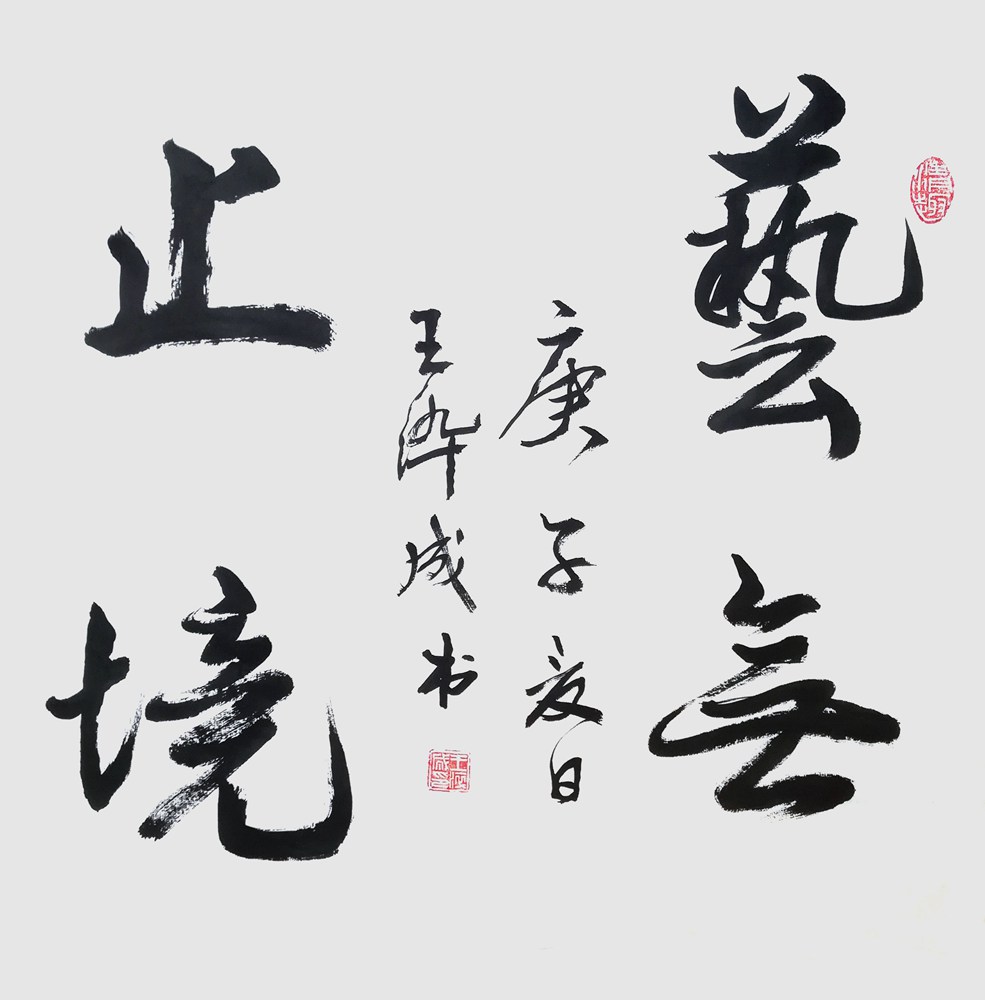 藝無
止境
庚子夏日
王淬成书